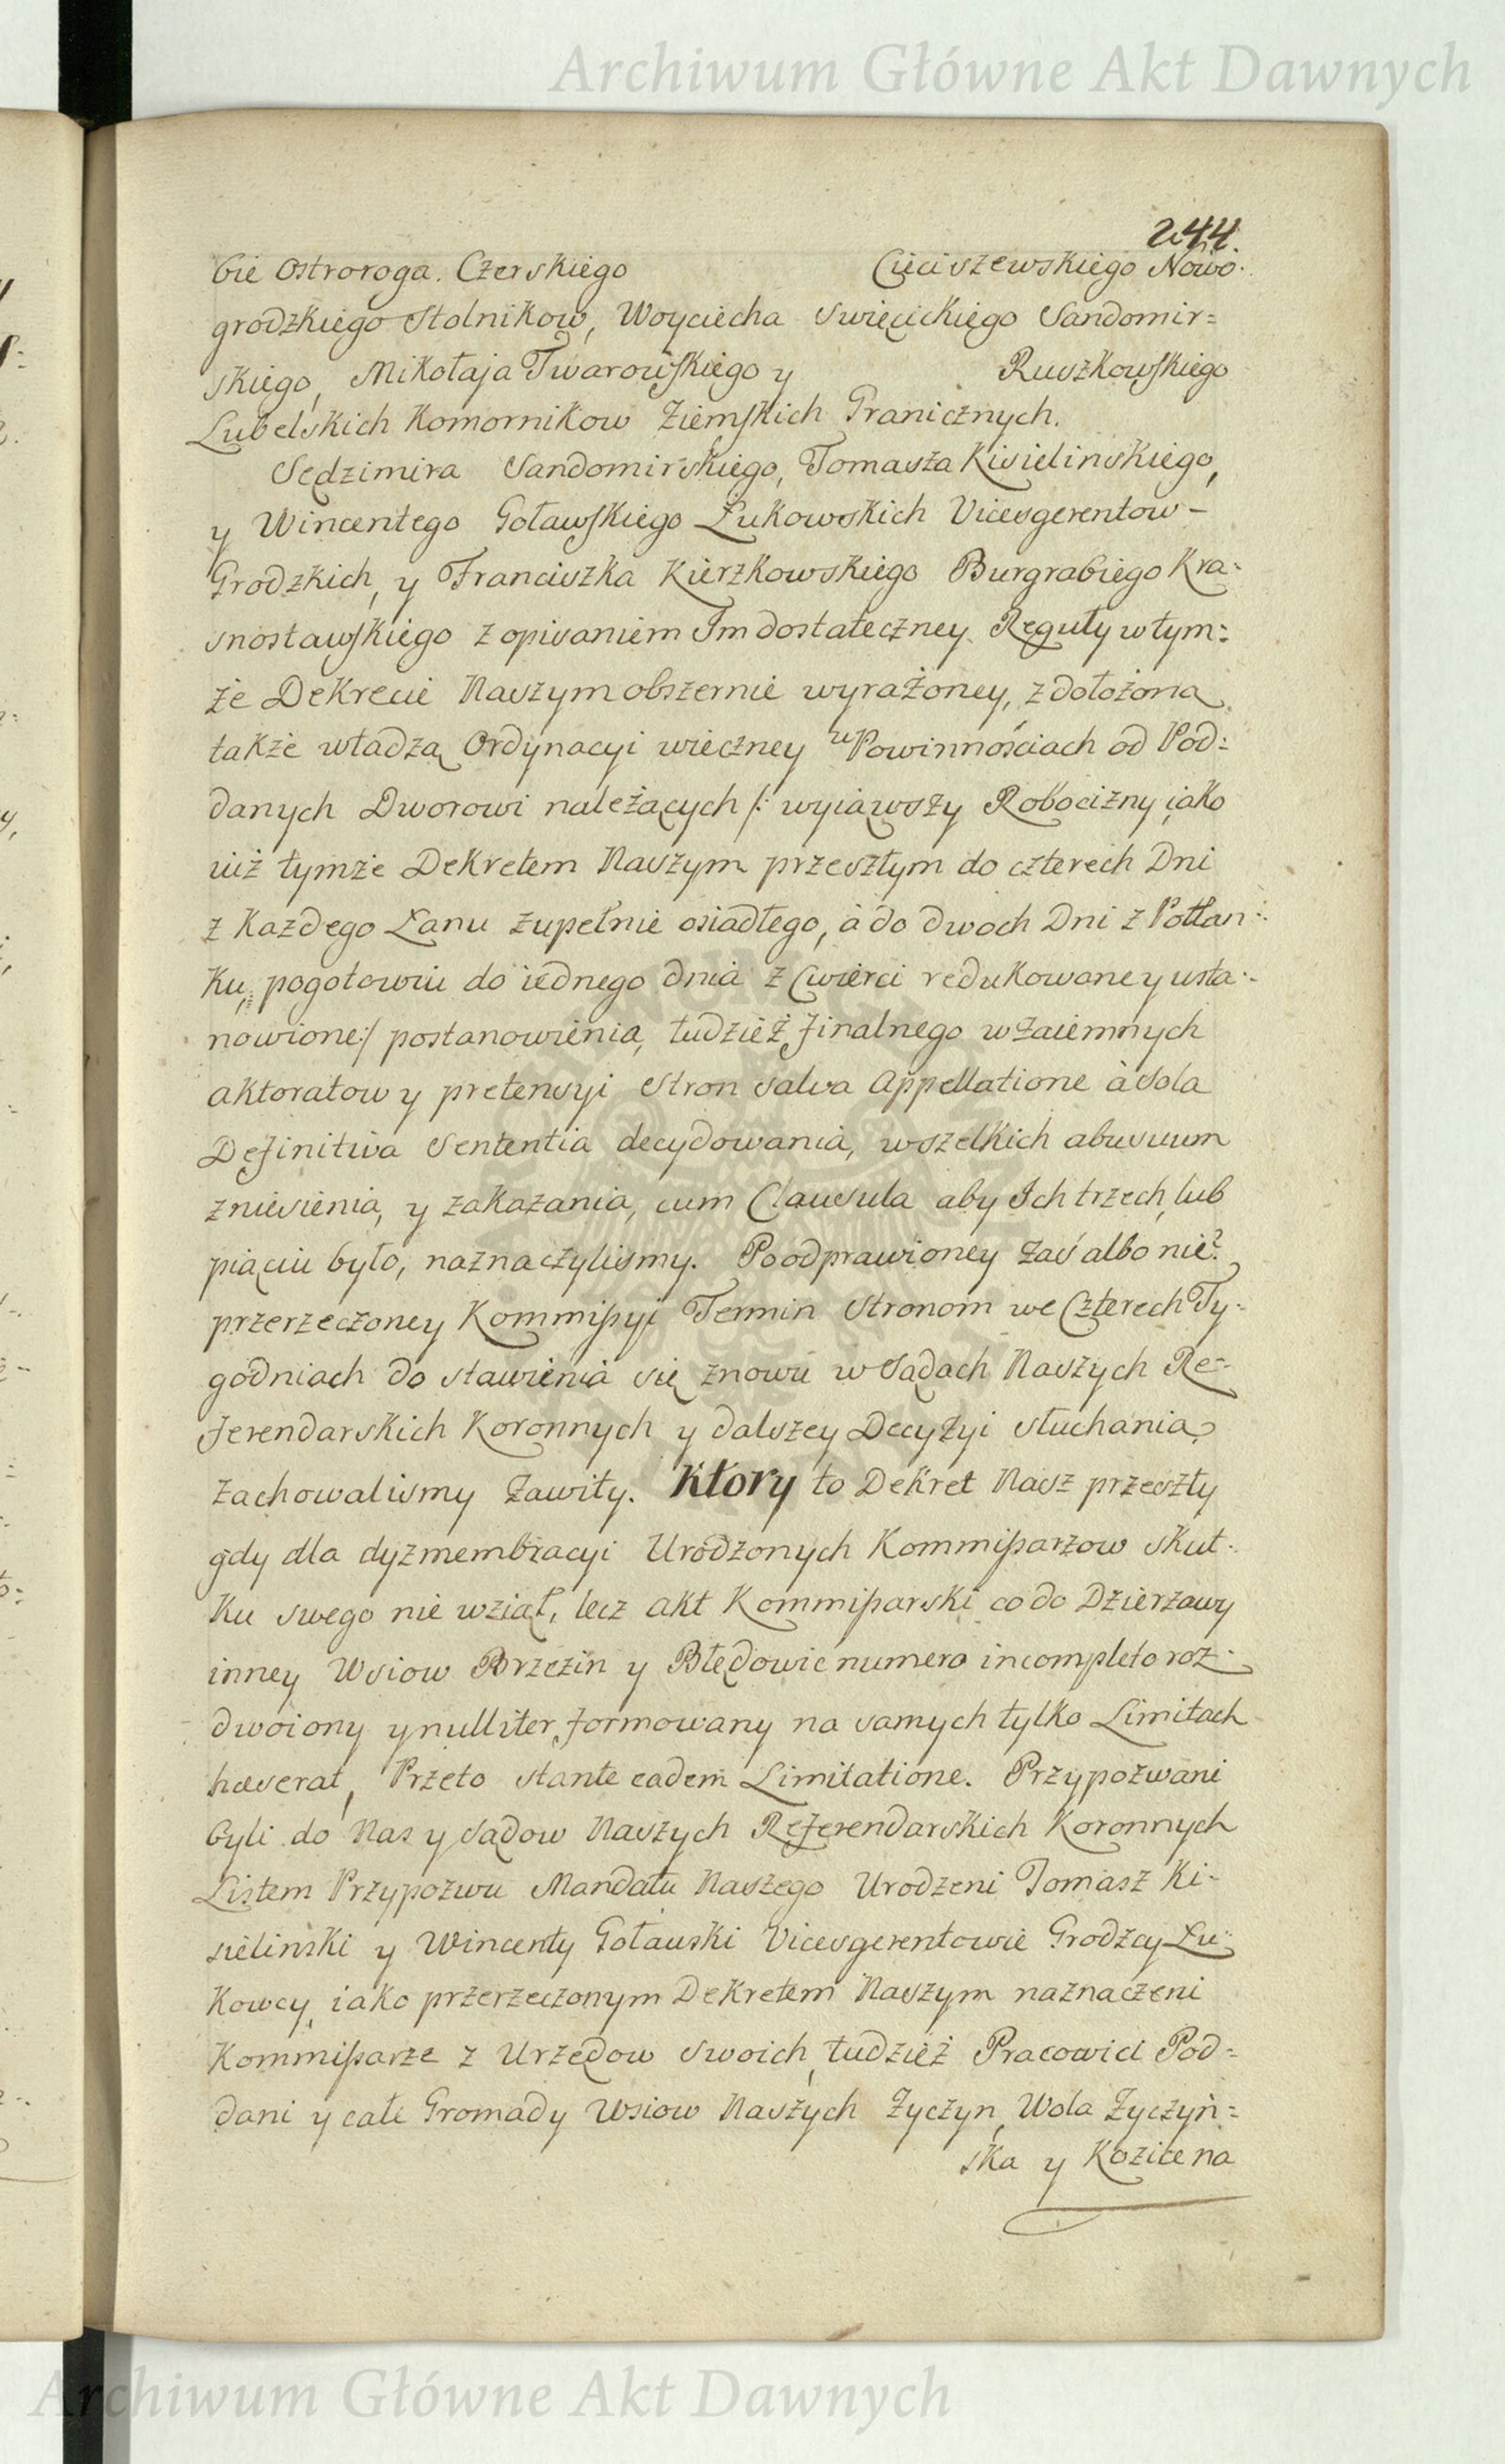 Archiwum Główne Akt Dawnych
244.
bie Ostroroga. Czerskiego Cieciszewskiego Nowo-
grodzkiego Stolnikow, Woyciecha Swięcickięgo Sandomir=
skiego, Mikołaja Twarowskiego y Ruszkowskiego
Lubelskich Komornikow Ziemskich Granicznych.
Sędzimira Sandomirskiego, Tomasza Kisielinskiego,
y Wincentego Goławskiego Łukowskich Vicesgerentow-
Grodzkich, y Franciszka Kierzkowskiego Burgrabiego Kra-
snostawskiego z opisaniem Im dostateczney Reguły w tym=
że Dekrecie Naszym obszernie wyrażoney, z dołożoną
także władzą Ordynacyi wieczney w Powinnościach od Pod=
danych Dworowi należących /: wyiąwszy Robocizny iako
iuż tymże Dekretem Naszym przeszłym do czterech Dni
z Każdego Łanu zupełnie osiadłego, à do dwoch Dni z Połłan-
Ku, pogotowiu do iednego dnia z Cwierci redukowane y usta-
nowione:/ postanowienia, tudzież finalnego wzaiemnych
aktoratow y pretensyi Stron salva Appellatione à Sola
Definitiva Sententia decydowania, wszelkich abusuum
zniesienia, y zakazania, cum Clausula aby Ich trzech, lub
piąciu było, naznaczylismy. Po odprawioney zaś albo nie
przerzeczoney Kommissyi Termin Stronom we Czterech Ty-
godniach do stawienia się znowu w Sądach Naszych Re-
ferendarskich Koronnych y dalszey Decyzyi słuchania
zachowalismy zawity. Ktory to Dekret Nasz przeszły
gdy dla dyzmembracyi Urodzonych Kommissarzow skut-
Ku swego nie wziął, lecz akt Kommissarski co do Dzierzawy
inney Wsiow Brzezin y Błędowic numero incompleto roz-
dwoiony y nulliter formowany na samych tylko Limitach
hæserat, Przeto stante eadem Limitatione. Przypozwani
byli do Nas y Sądow Naszych Referendarskich Koronnych
Listem Przypozwu Mandatu Naszego Urodzeni Tomasz Ki-
sielinski y Wincenty Goławski Vicesgerentowie Grodzcy Łu-
Kowcy, iako przerzeczonym Dekretem Naszym naznaczeni
Kommissarze z Urzędow Swoich, tudzież Pracowici Pod=
dani y całe Gromady Wsiow Naszych Zyczyn, Wola Zyczyń=
ska y Kozice na
Archiwum Główne Akt Dawnych